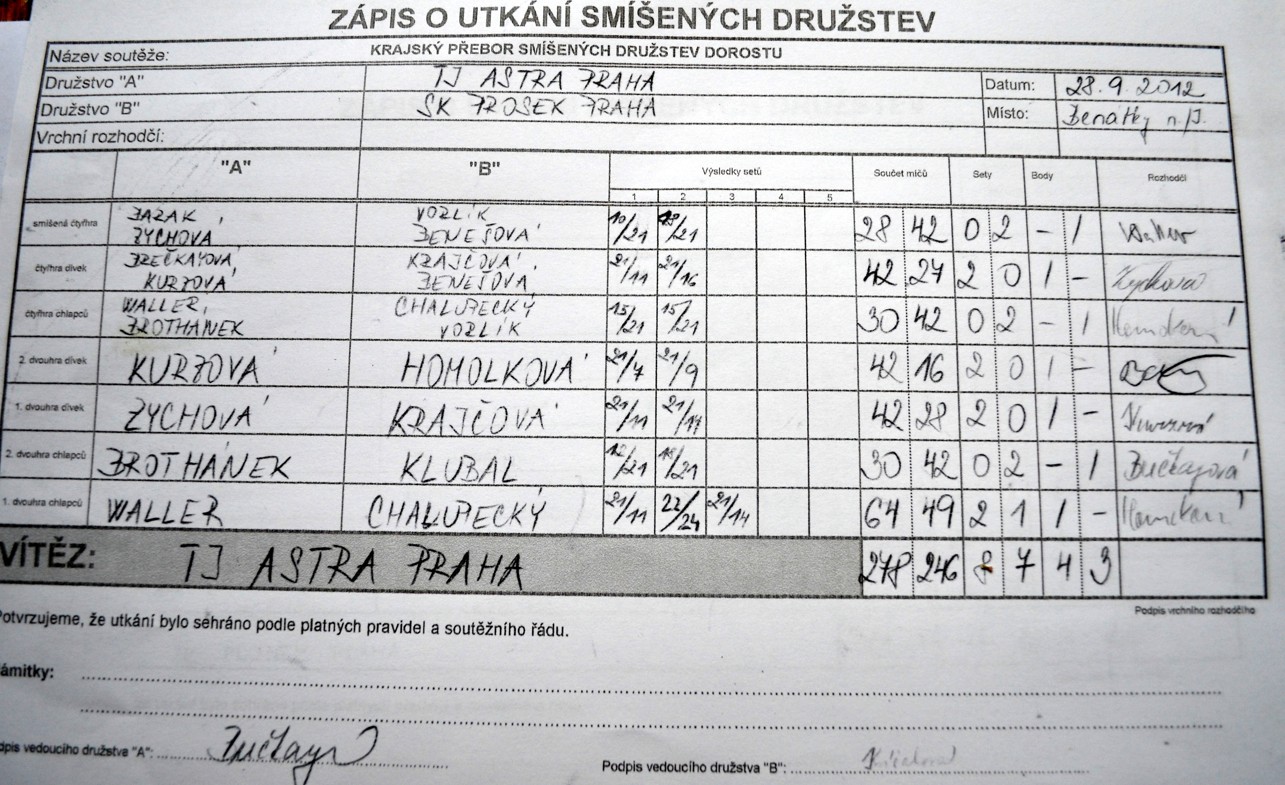 ZÁPIS O UTKÁNÍ SMÍŠENÝCH DRUŽSTEV
Název soutěže: KRAJSKÝ PŘEBOR SMÍŠENÝCH DRUŽSTEV DOROSTU
Družstvo "A" TJ ASTRA PRAHA Datum: 28.9.2012
Družstvo "B" SK PROSEK PRAHA Místo: Benátky n/J.
Vrchní rozhodčí:
"A" "B" Výsledky setů Součet míčů Sety Body Rozhodčí
1 2 3 4 5
smíšená čtyřhra BAZAK, VORLÍK 10/21 /21 28 42 0 2 - 1
ZYCHOVÁ BENEŠOVÁ
čtyřhra dívek KRAJČOVÁ, 21/11 21/16 42 27 2 0 1 - Zychová
KURZOVÁ BENEŠOVÁ
čtyřhra chlapců WALLER, CHALUPECKÝ 15/21 15/21 30 42 0 2 - 1
BROTHÁNEK VORLÍK
2. dvouhra dívek KURZOVÁ HOMOLKOVÁ 21/7 21/9 42 16 2 0 1 -
1. dvouhra dívek ZYCHOVÁ KRAJČOVÁ 21/11 21/17 42 28 2 0 1 -
2. dvouhra chlapců BROTHÁNEK KLUBAL 12/21 18/21 30 42 0 2 - 1
1. dvouhra chlapců WALLER CHALUPECKÝ 21/11 22/24 21/14 64 49 2 1 1 -
VÍTĚZ: TJ ASTRA PRAHA 278 246 8 7 4 3
Podpis vrchního rozhodčího
Potvrzujeme, že utkání bylo sehráno podle platných pravidel a soutěžního řádu.
ámitky:
dpis vedoucího družstva "A":
Podpis vedoucího družstva "B":